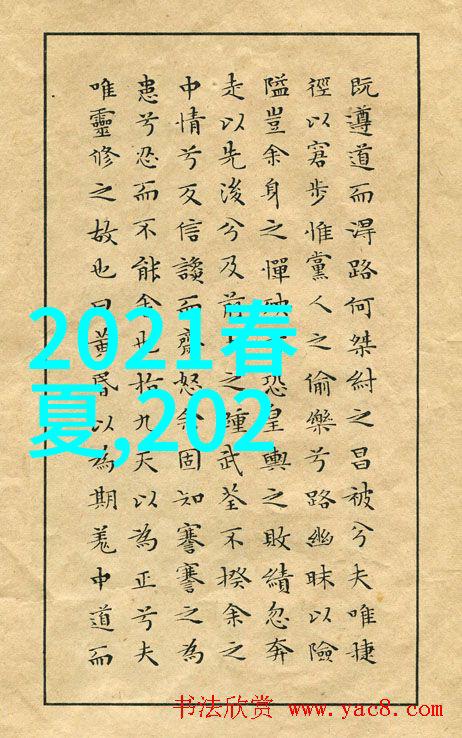 既遵道而淂路何桀紂之昌被兮夫唯捷
徑以窘步惟黨人之偷樂兮路幽昧以險
隘豈余身之憚殃恐皇輿之敗績忽奔
走以先後兮及前之踵武荃不揆余之
中情兮反信讒而齋怒余固知謇謇之為
患兮忍而不能舍也指九天以為正兮夫
唯靈修之故也曰黃昏以為期羌中道而
2021春
夏,202
书法欣赏 www.yac8.com